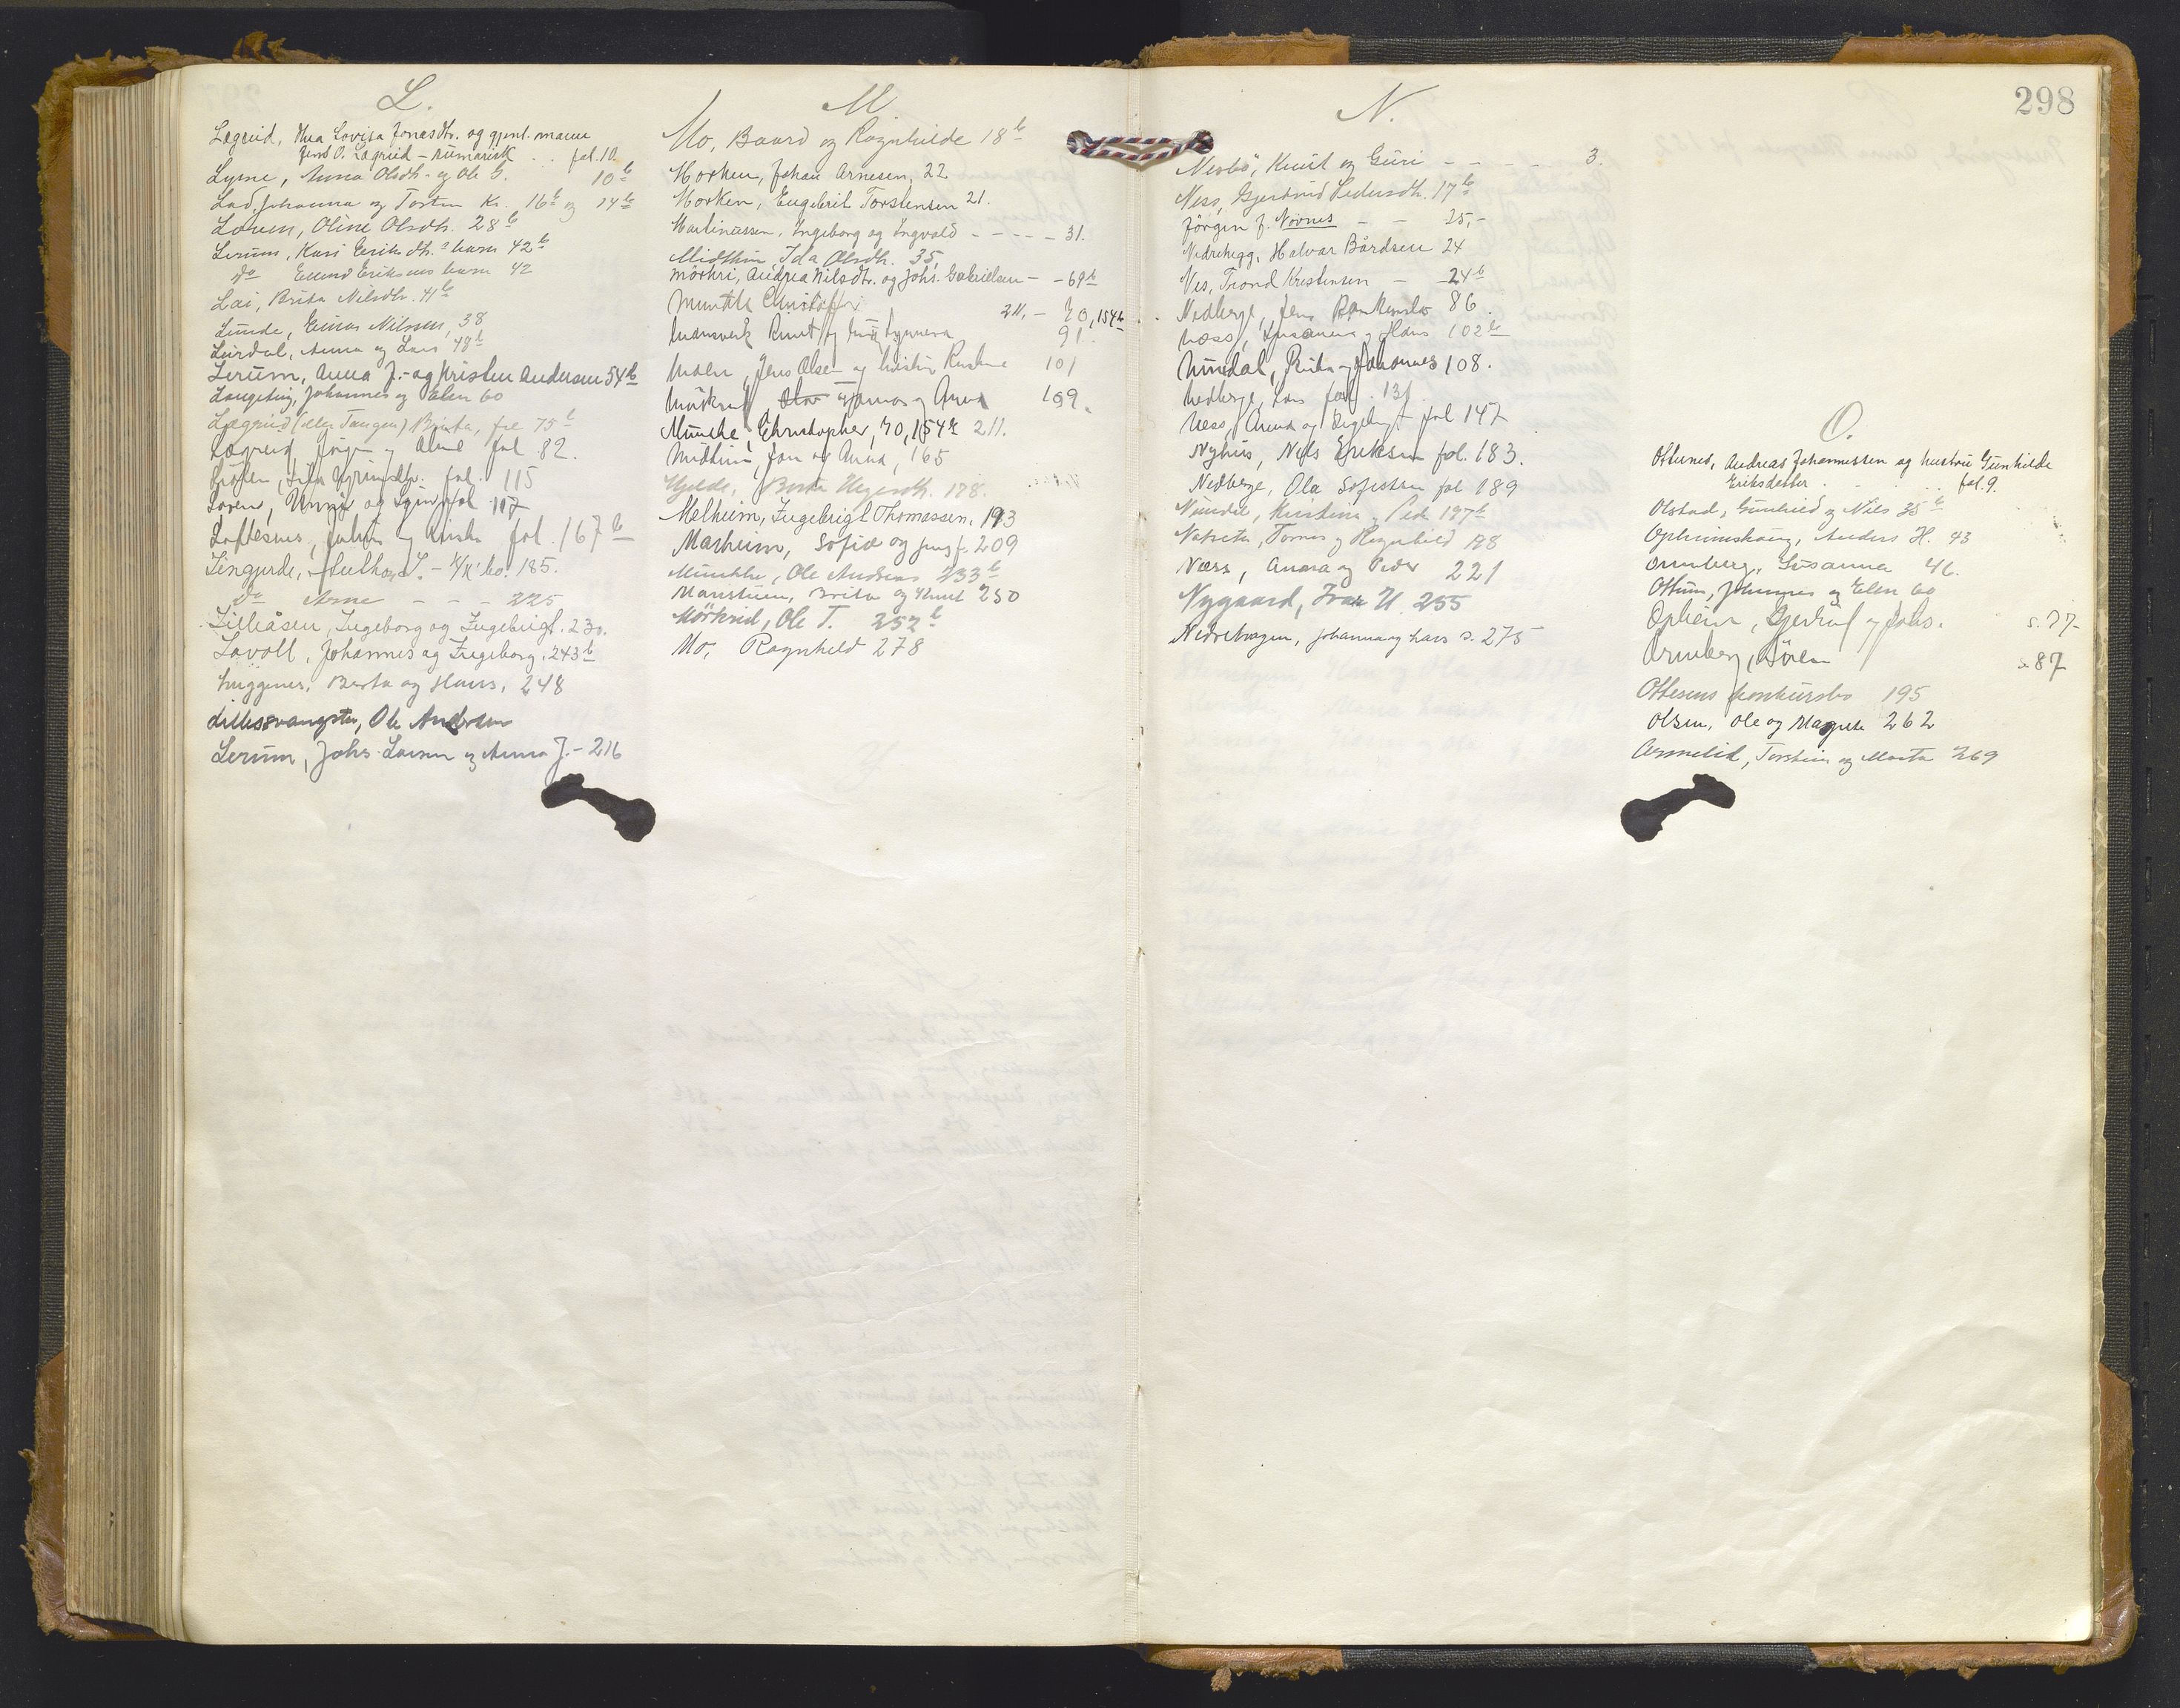 L.
Lægreid, Thea Lovisa Jonasdtr. og gjenl. mann
Jens O. Lægreid - Rumarisk . . fol. 10.
Lyme, Anna Olsdtr. og Ole G. 10b
Lad, Johanna og Torsten Kr. 16b og 14b
Loven, Oline Olsdtr. 28b
Lerum, Kari Eriksdtrs barn 42b
do Erik Eriksens barn 42
Lai, Brita Nilsdtr. 41b
Lunde, Einar Nilssen, 38
Lærdal, Anna og Lars 48b
Lerum, Anna J. - og Kristen Andersen 54b
Langeteig, Johannes og Elen 60
Lægreid (eller Tangen) Brita, fol 75b
Lægreid, Jørgen og Alme fol 82.
fol. 115
Loven, og fol 117
Loftesnes, og fol. 167b
Lingjerde, 185.
do Arne - - - 225
Lilleåsen, Ingeborg og Ingebrigt. 230.
Lavoll, Johannes og Ingeborg. 243b
Luggenes, Berta og Hans, 248
Lillesvangstu, Ole Andreas
Lerum, Johs. Larsen og Anna J. - 216
M
Mo, Baard og Ragnhilde 18b
Morken, Johan Arnesen, 22
Morken, Engebrit Torstensen 21.
Martinussen, Ingeborg og Ingvald - - - - 31.
Midthun Ida Olsdtr. 35,
Mørkri, Andrea Nilsdtr. og Johs. Gabrielsen - - 69b
Munthe Christoffer 211, - 70, 154b
Knut og 91.
Moen, Jens Olsen og 101
og Anna 109.
Munthe, Christopher, 70, 154b 211.
Midthun, Jon og Anna, 165
Berte 178.
Melheim, Ingebrigt Thomassen, 193
Marheim, Sofie og 209
Munthe, Ole Andreas 233b
Marstein, Brita og Knut 250
Mørkrid, Ole T. 252b
Mo, Ragnhild 278
N.
298
Nesbø, Knut og Guri - - - - 3.
Ness, Gjertrud Pedersdtr. 17b
Jörgen J. Nornes - - 25,-
Nedrehegg, Halvar Bårdsen 24
Nes, Trond Kristensen - 24b
Nedberge, Jens 86
Næss, Susanna og Hans 102b
Nundal, Brita og Johannes 108.
Nedberge, Lars fol. 131
Næss, Anna og Ingebrigt fol 147
Nyhus, Nils Eriksen fol. 183.
Nedberge, Ola Sjurssen fol 189
Nundal, Kristina og Peder 197b
Natvik, Tomas og Ragnhild 198
Næss, Anna og Peder 221
Nygaard, Ivar H. 255
Nedrehagen, Johanna og Lars s. 275
O.
Ottenes, Andreas Johannessen og hustru Gunhilde
Eriksdatter . . . . fol. 9.
Olstad, Gunhild og Nils 35b
Opheimshaug, Anders H. 43
Ornberg, Susanna 46.
Ottum, Johannes og Elen 60
Opheim, Gjertrud og Johs. s. 77-
Ormberg, Sören s. 87
Ottesens konkursbo 195
Olsen, Ole og Magrete 262
Ormelid, Torstein og Marta 269